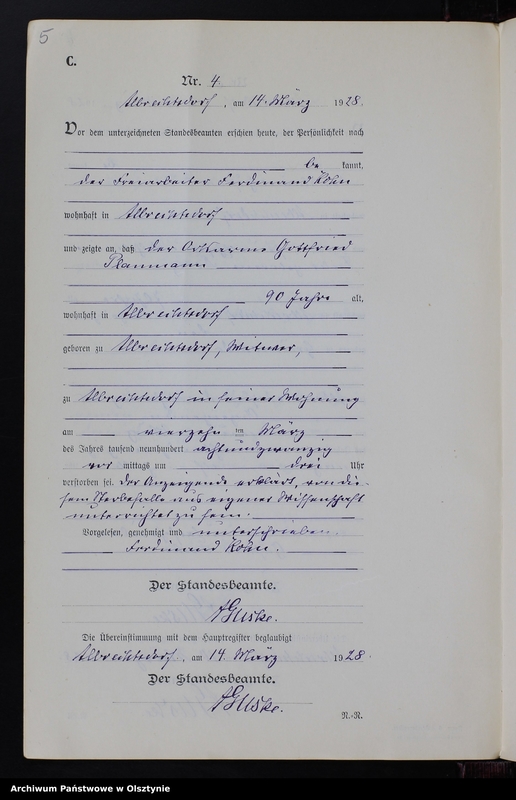 5
C.
Nr. 4
Albrechtsdorf, am 14. März 1928.
Vor dem unterzeichneten Standesbeamten erschien heute, der Persönlichkeit nach
be kannt,
der Freiarbeiter Ferdinand Köhn
wohnhaft in Albrechtsdorf
und zeigte an, daß der Ortsarme Gottfried
Plaumann
90 Jahre alt,
wohnhaft in Albrechtsdorf
geboren zu Albrechtsdorf, Witwer,
zu Albrechtsdorf in seiner Wohnung
am vierzehn ten März
des Jahres tausend neunhundert achtundzwanzig
vor mittags um drei Uhr
verstorben sei. Der Anzeigende erklärt, von die-
sem Sterbefalle aus eigener Wissenschaft
unterrichtet zu sein.
Vorgelesen, genehmigt und unterschrieben.
Ferdinand Köhn.
Der Standesbeamte.
Guske.
Die Übereinstimmung mit dem Hauptregister beglaubigt
Albrechtsdorf, am 14. März 1928.
Der Standesbeamte.
Guske.
N.-R.
Archiwum Państwowe w Olsztynie